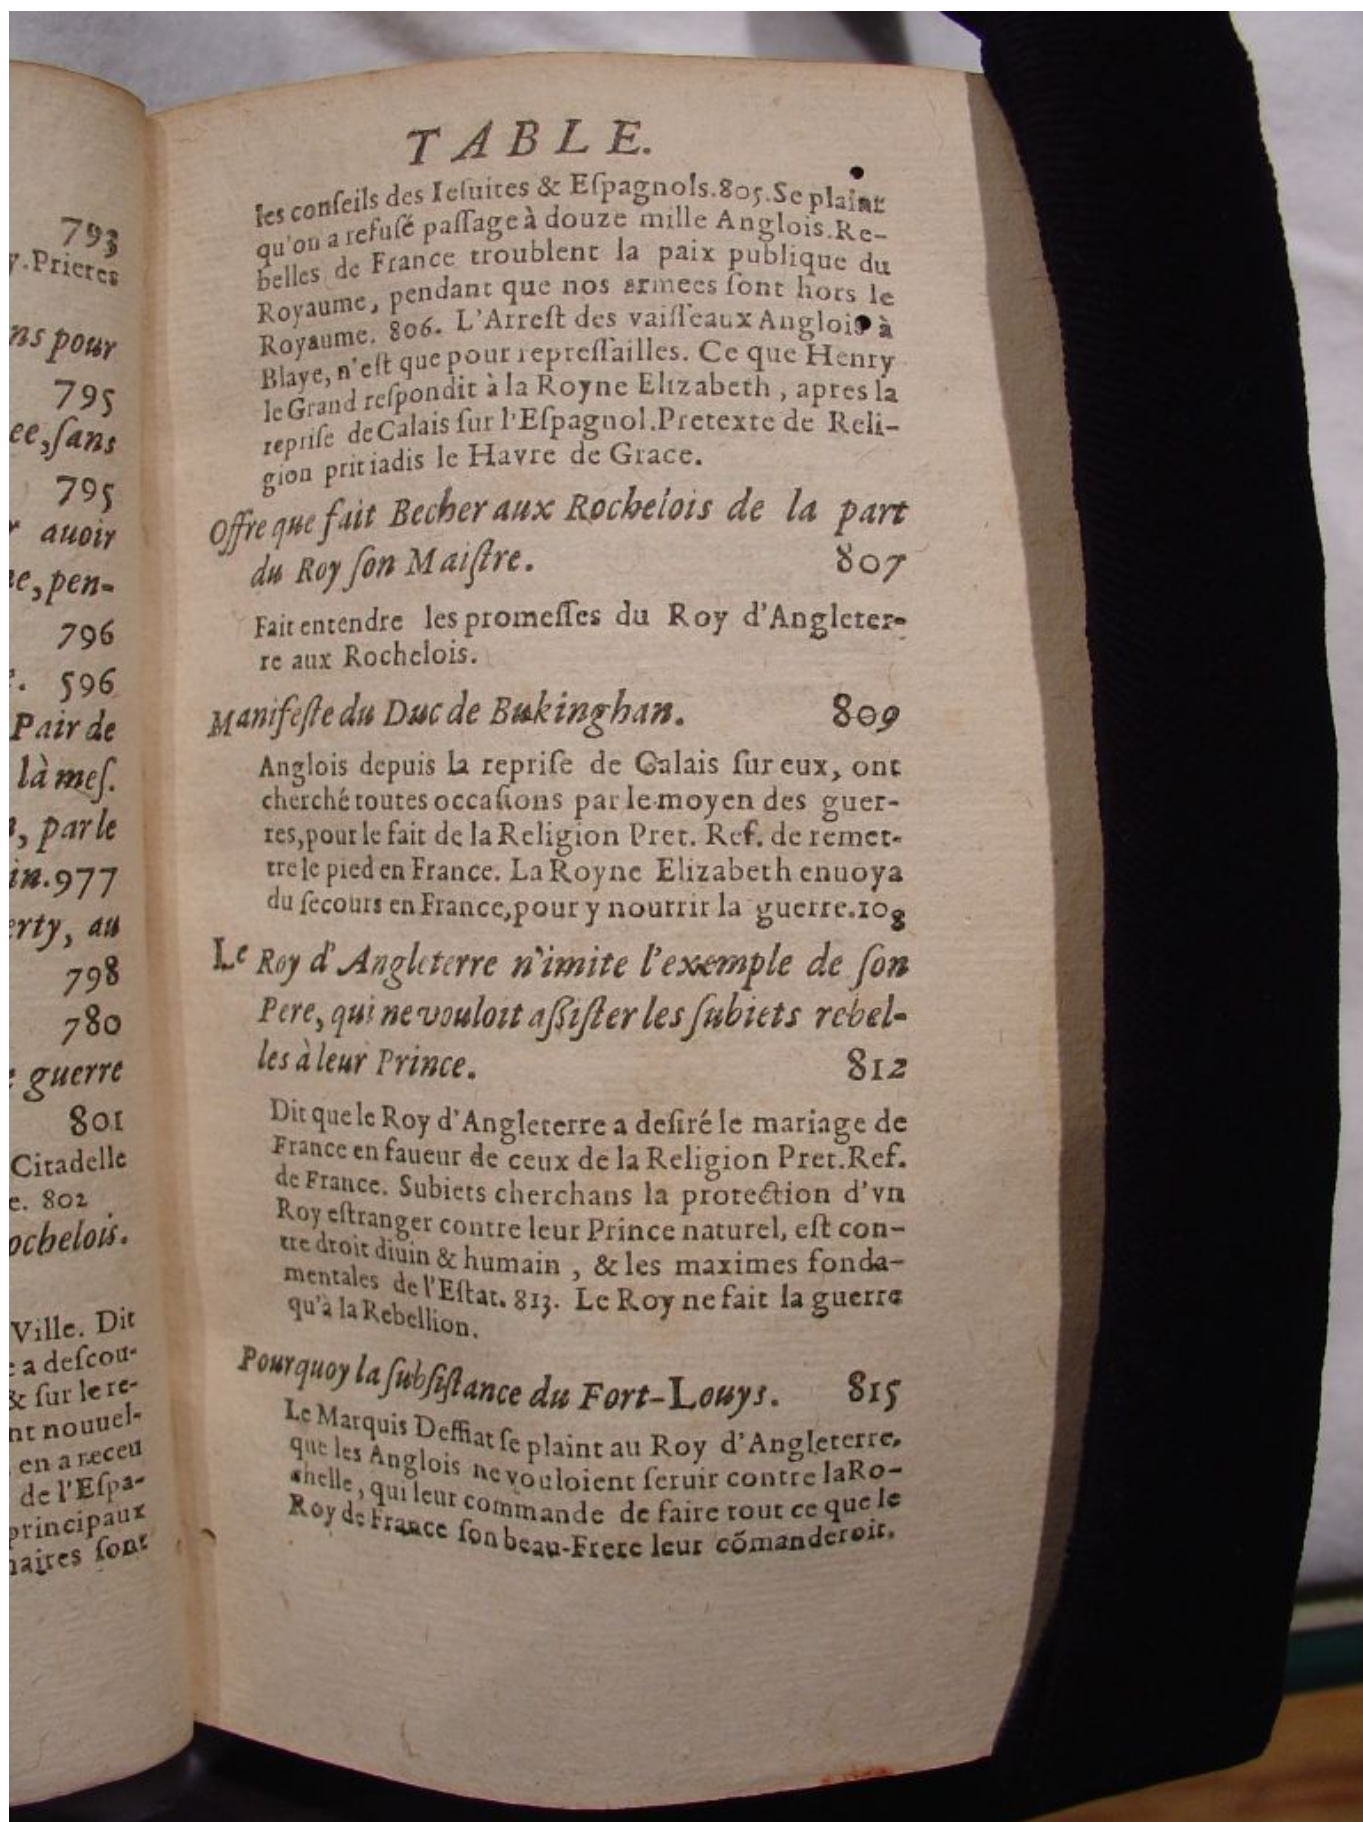 793
y. Prieres
ns pour
795
ee, ſans
795
r auoir
ne, pen-
796
. 596
Pair de
là meſ.
, par le
in. 977
erty, au
798
780
e guerre
801
Citadelle
e. 802
ochelois.
Ville. Dit
e a deſcou-
& ſur le re-
nt nouuel-
en a receu
de l'Eſpa-
principaux
naires ſont
TABLE.
les conſeils des Ieſuites & Eſpagnols. 805. Se plaint
qu'on a refuſé paſſage à douze mille Anglois. Re-
belles de France troublent la paix publique du
Royaume, pendant que nos armees ſont hors le
Royaume. 806. L'Arreſt des vaiſſeaux Anglois à
Blaye, n'eſt que pour repreſſailles. Ce que Henry
le Grand reſpondit à la Royne Elizabeth, apres la
repriſe de Calais ſur l'Eſpagnol. Pretexte de Reli-
gion prit iadis le Havre de Grace.
Offre que fait Becher aux Rochelois de la part
du Roy ſon Maiſtre. 807
Fait entendre les promeſſes du Roy d'Angleter-
re aux Rochelois.
Manifeſte du Duc de Bukinghan. 809
Anglois depuis la repriſe de Calais ſur eux, ont
cherché toutes occaſions par le moyen des guer-
res, pour le fait de la Religion Pret. Ref. de remet-
tre le pied en France. La Royne Elizabeth enuoya
du ſecours en France, pour y nourrir la guerre. 108
Le Roy d'Angleterre n'imite l'exemple de ſon
Pere, qui ne vouloit aſſiſter les ſubiets rebel-
les à leur Prince. 812
Dit que le Roy d'Angleterre a deſiré le mariage de
France en faueur de ceux de la Religion Pret. Ref.
de France. Subiets cherchans la protection d'vn
Roy eſtranger contre leur Prince naturel, eſt con-
tre droit diuin & humain, & les maximes fonda-
mentales de l'Eſtat. 813. Le Roy ne fait la guerre
qu'à la Rebellion.
Pourquoy la ſubſiſtance du Fort-Louys. 815
Le Marquis Deffiat ſe plaint au Roy d'Angleterre,
que les Anglois ne vouloient ſeruir contre la Ro-
chelle, qui leur commande de faire tout ce que le
Roy de France ſon beau-Frere leur cõmanderoit.